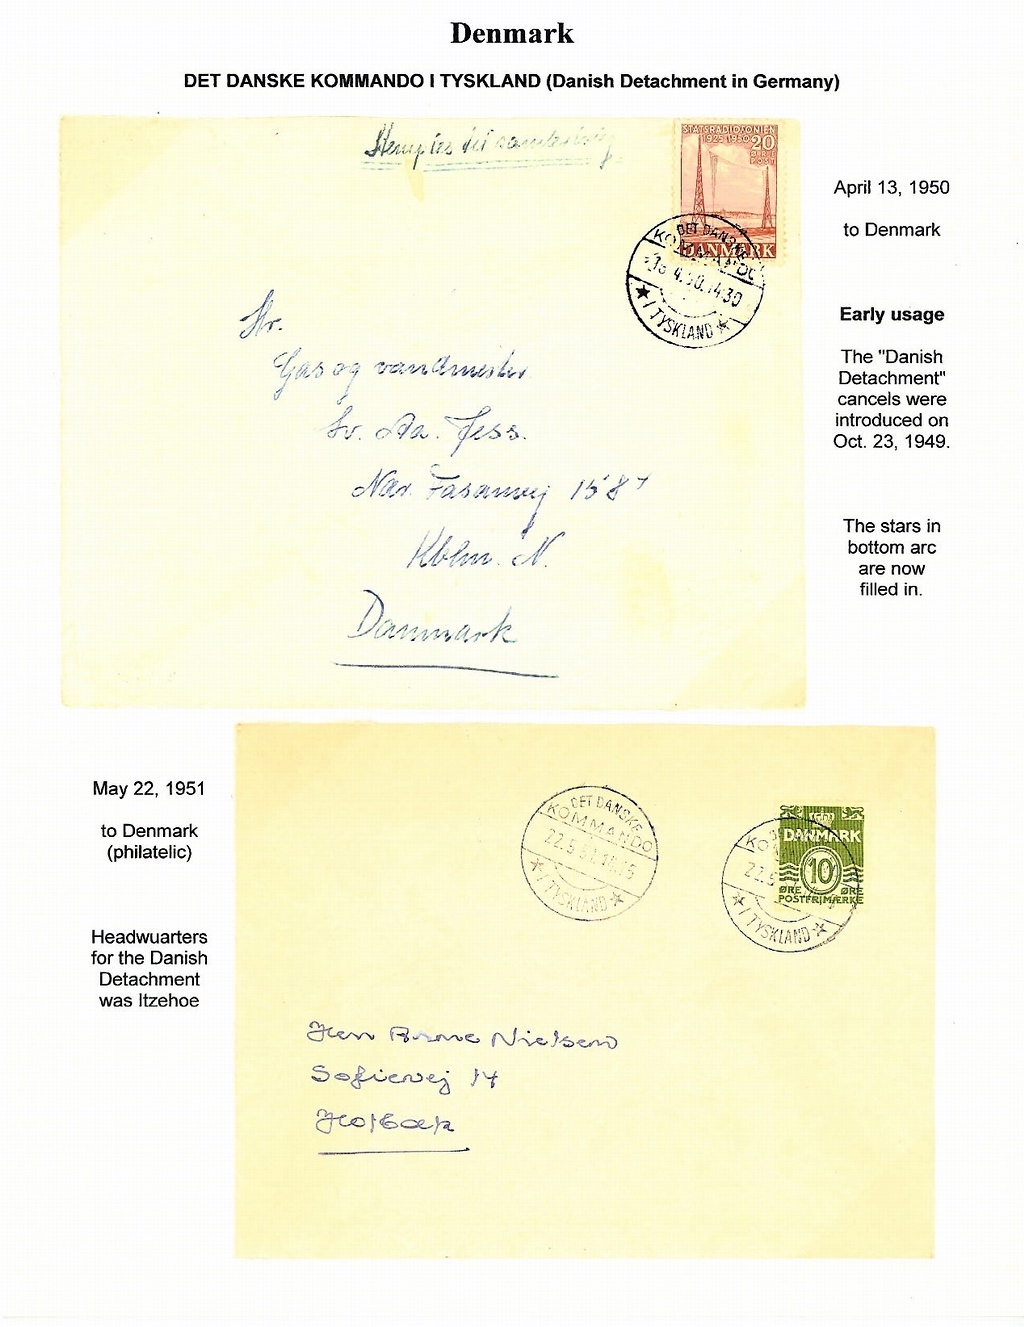 Denmark
DET DANSKE KOMMANDO I TYSKLAND (Danish Detachment in Germany)
STATSRADIOFONIEN
1925 1950 20
ØRE
POST
DANMARK
DET DANSKE
KOMMANDO
4.50.1430
★ I TYSKLAND ★
April 13, 1950
to Denmark
Early usage
The "Danish
Detachment"
cancels were
introduced on
Oct. 23, 1949.
The stars in
bottom arc
are now
filled in.
Hr.
Gas og vandmester
Sv. Aa. Jess.
Ndr. Fasanvej 158
Kbhn. N.
Danmark
May 22, 1951
to Denmark
(philatelic)
Headwuarters
for the Danish
Detachment
was Itzehoe
DET DANSKE
KOMMANDO
22.5.51.
☆ I TYSKLAND ☆
DANMARK
10
ØRE ØRE
POSTFRIMÆRKE
KO
22.5
☆ I TYSKLAND ☆
Herr Arne Nielsen
Sofievej 14
Holbæk